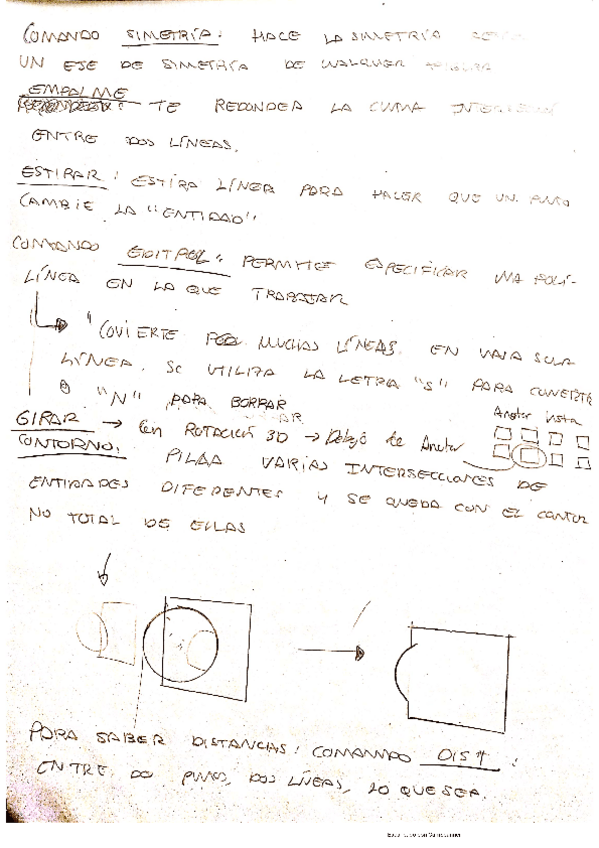 COMANDO SIMETRÍA: HACE LA SIMETRÍA
UN EJE DE SIMETRÍA DE CUALQUIER
EMPALME
TE REDONDEA LA CURVA
ENTRE DOS LÍNEAS.
ESTIRAR: ESTIRA LÍNEA PARA HACER QUE UN PUNTO
CAMBIE LA "ENTIDAD"
COMANDO EDITPOL: PERMITE ESPECIFICAR UNA POLÍ-
LÍNEA EN LA QUE TRABAJAR
"COVIERTE MUCHAS LÍNEAS EN UNA SOLA
LÍNEA. SE UTILIZA LA LETRA "S" PARA
O "N" PARA BORRAR
GIRAR → Con ROTACIÓN 3D → Debajo de Anotar
Anotar Vista
CONTORNO: PILLA VARIAS INTERSECCIONES DE
ENTIDADES DIFERENTES Y SE QUEDA CON EL CONTOR
NO TOTAL DE ELLAS
PARA SABER DISTANCIAS: COMANDO DIST:
ENTRE DOS PUNTOS, DOS LÍNEAS, LO QUE SEA.